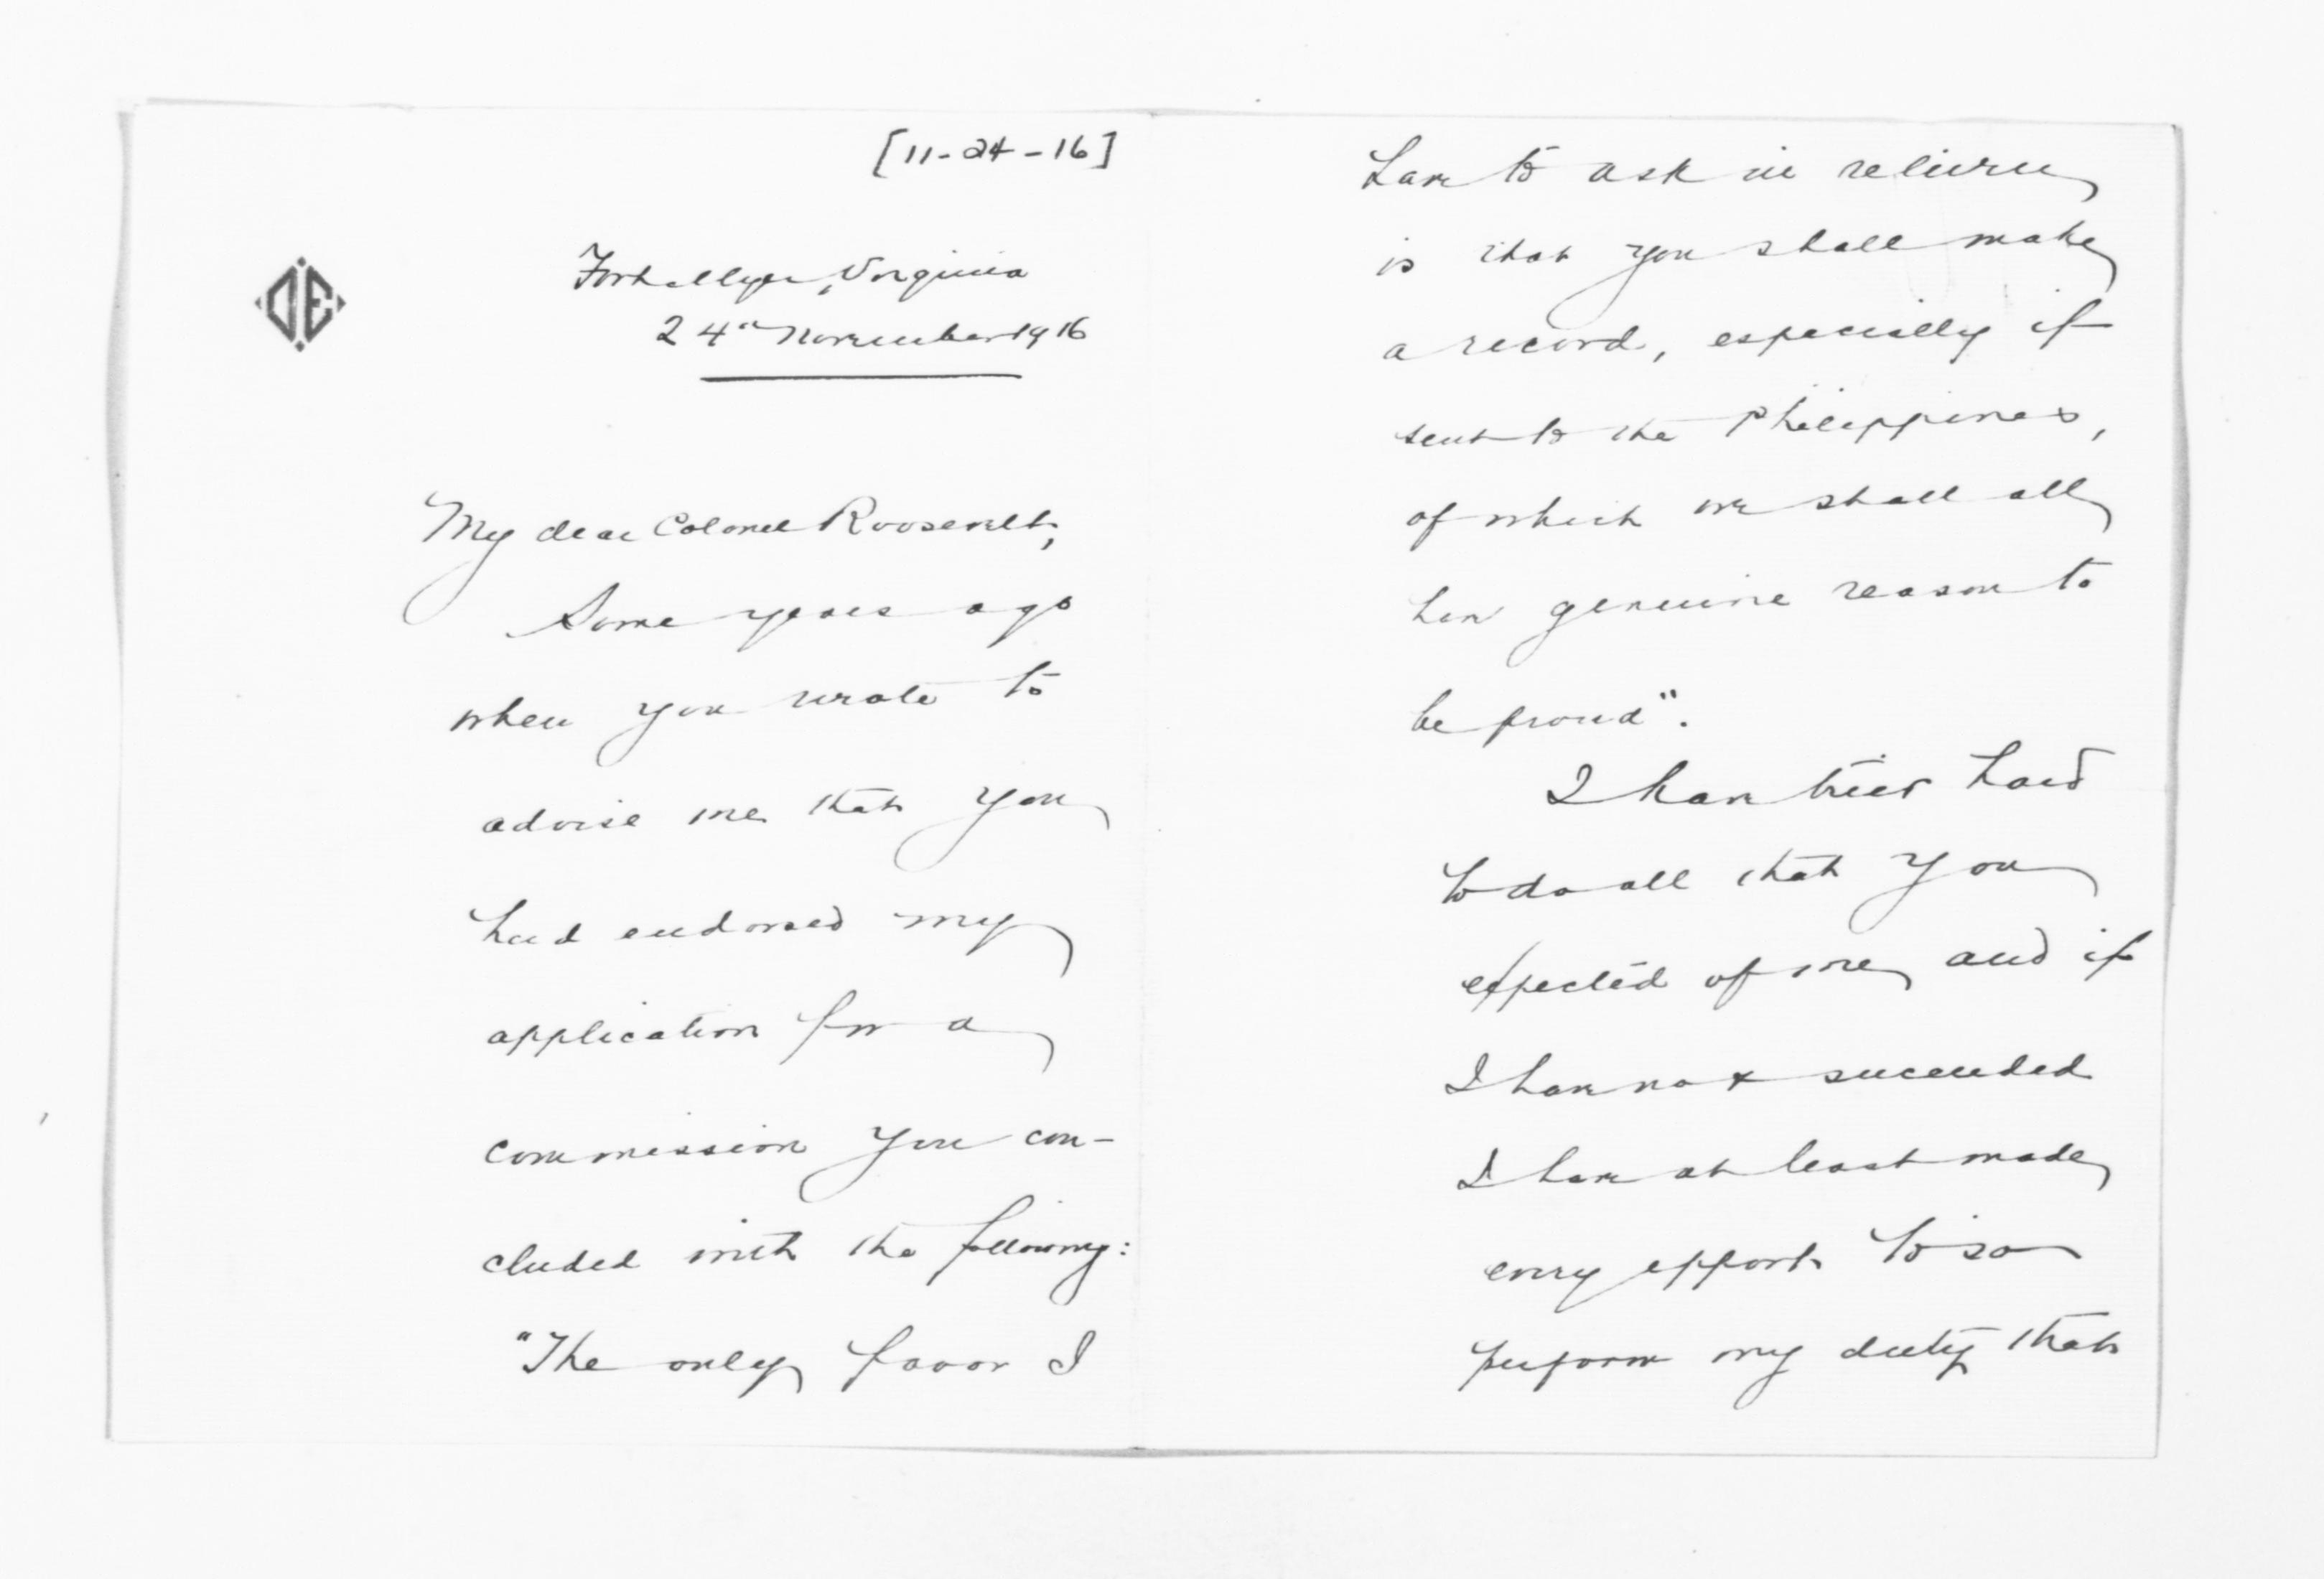 [11-24-16]
DE
Fort Myer, Virginia
24" November 1916
My dear Colonel Roosevelt,
Some years ago
when you wrote to
advise me that you
had endorsed my
application for a
commission you con-
cluded with the following:
"The only favor I
have to ask in return
is that you shall make
a record, especially if
sent to the Philippines,
of which we shall all
have genuine reason to
be proud".
I have tried hard
to do all that you
expected of me and if
I have not succeeded
I have at least made
every effort to so
perform my duty that